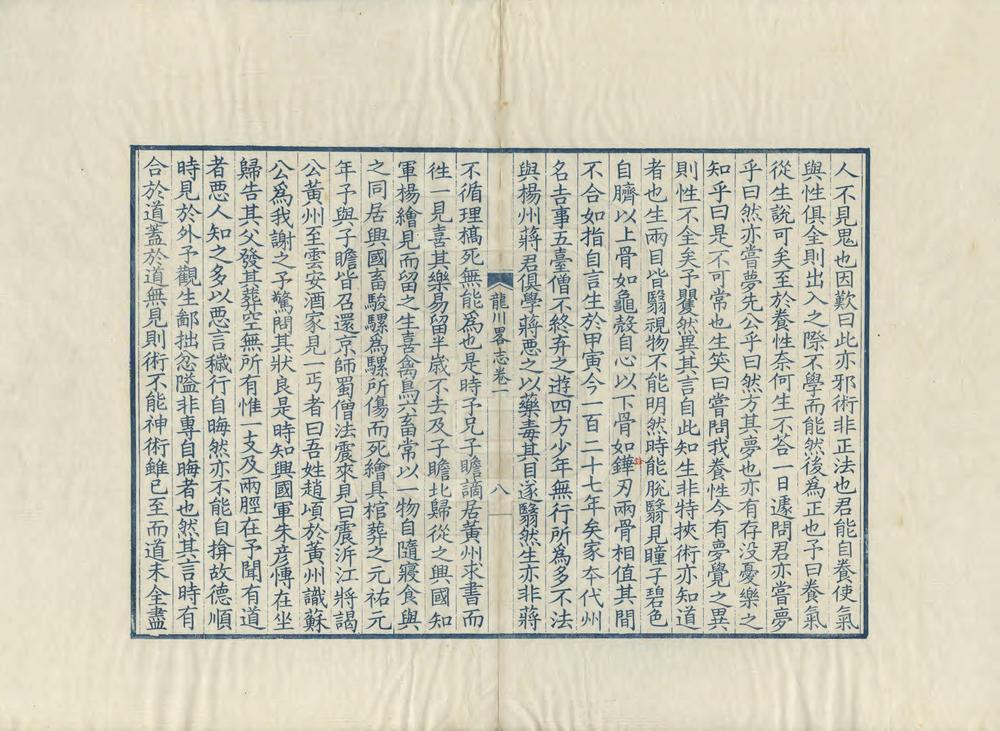 人不見鬼也因歎曰此亦邪術非正法也君能自養使氣
與性俱全則出入之際不學而能然後為正也予曰養氣
從生說可矣至於養性奈何生不荅一日遽問君亦嘗夢
乎曰然亦嘗夢先公乎曰然方其夢也亦有存没憂樂之
知乎曰是不可常也生笑曰嘗問我養性今有夢覺之異
則性不全矣予矍然異其言自此知生非特挾術亦知道
者也生兩目皆翳視物不能明然時能脫翳見瞳子碧色
自臍以上骨如龜殼自心以下骨如鏵刃兩骨相值其間
不合如指自言生於甲寅今一百二十七年矣家夲代州
名吉事五臺僧不終弃之遊四方少年無行所為多不法
與楊州蔣君俱學蔣惡之以藥毒其目遂翳然生亦非蔣
龍川畧志卷一
八
不循理槁死無能為也是時予兄子瞻謫居黃州求書而
徃一見喜其樂易留半歲不去及子瞻北歸從之興國知
軍楊繪見而留之生喜禽鳥六畜常以一物自隨寢食與
之同居興國畜駿騾為騾所傷而死繪具棺葬之元祐元
年予與子瞻皆召還京師蜀僧法震來見曰震泝江將謁
公黃州至雲安酒家見一丐者曰吾姓趙頃於黃州識蘇
公爲我謝之予驚問其狀良是時知興國軍朱彥愽在坐
歸告其父發其葬空無所有惟一支及兩脛在予聞有道
者惡人知之多以惡言穢行自晦然亦不能自揜故德順
時見於外予觀生鄙拙忿隘非專自晦者也然其言時有
合於道蓋於道無見則術不能神術雖已至而道未全盡